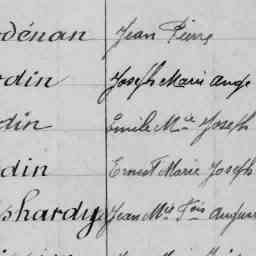 dénan Jean Pierre
din Joseph Marie Ange
din Emile Mie Joseph
din Ernest Marie Joseph
hardy Jean Mie Fois